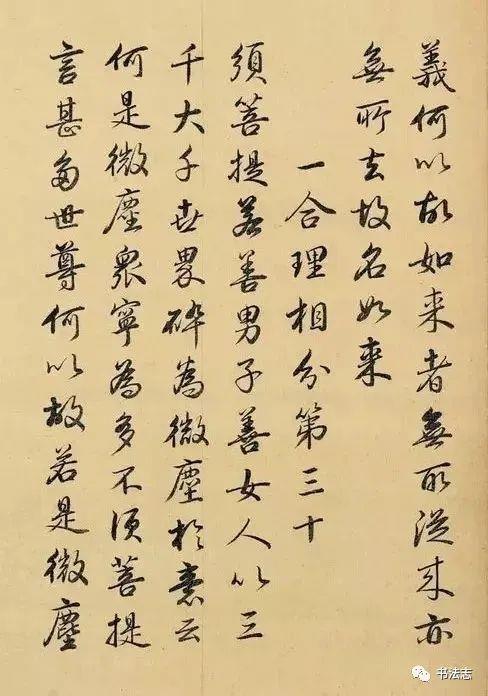 義何以故如来者無所從来亦
無所去故名如来
一合理相分第三十
須菩提若善男子善女人以三
千大千世界碎為微塵於意云
何是微塵衆寧為多不須菩提
言甚多世尊何以故若是微塵
书法志